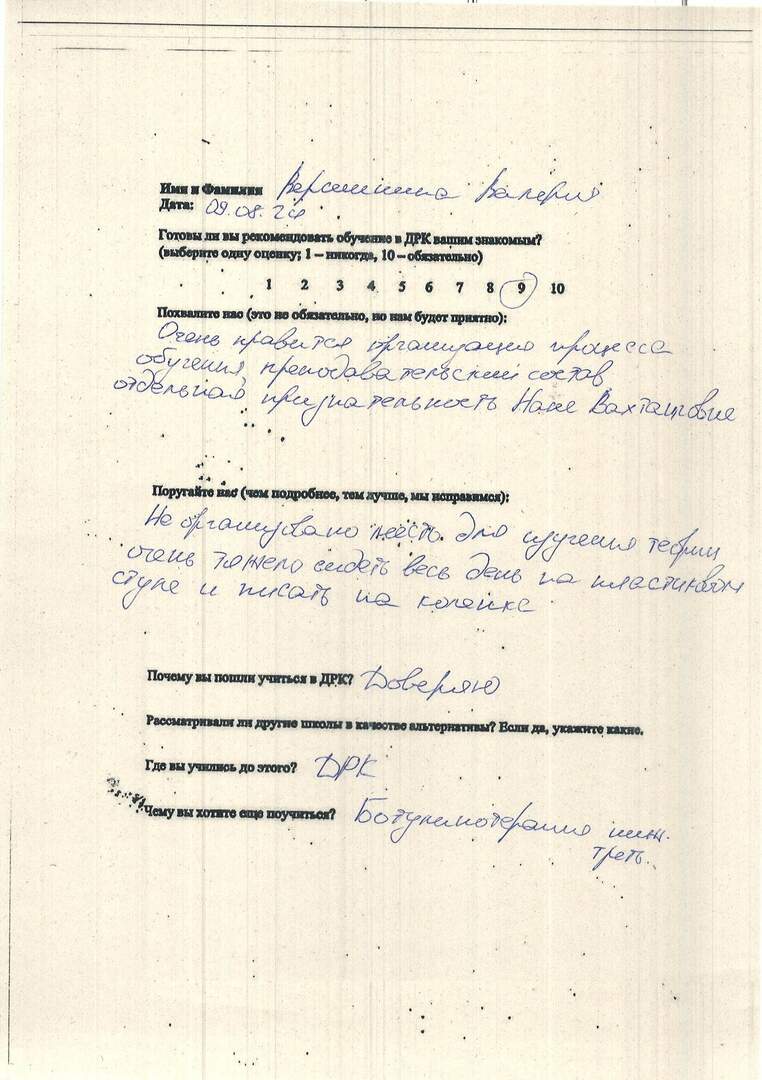 Имя и Фамилия Вершинина Валерия
Дата: 09.08.24
Готовы ли вы рекомендовать обучение в ДРК вашим знакомым?
(выберите одну оценку; 1 – никогда, 10 – обязательно)
1 2 3 4 5 6 7 8 9 10
Похвалите нас (это не обязательно, но нам будет приятно):
Очень нравится организация процесса
обучения, преподавательский состав
отдельная признательность Нане Вахтанговне
Поругайте нас (чем подробнее, тем лучше, мы исправимся):
Не организовано место для изучения теории
очень тяжело сидеть весь день на пластиковом
стуле и писать на коленке
Почему вы пошли учиться в ДРК? Доверяю
Рассматривали ли другие школы в качестве альтернативы? Если да, укажите какие.
Где вы учились до этого? ДРК
Чему вы хотите еще поучиться? Ботулинотерапия нижн.
треть.